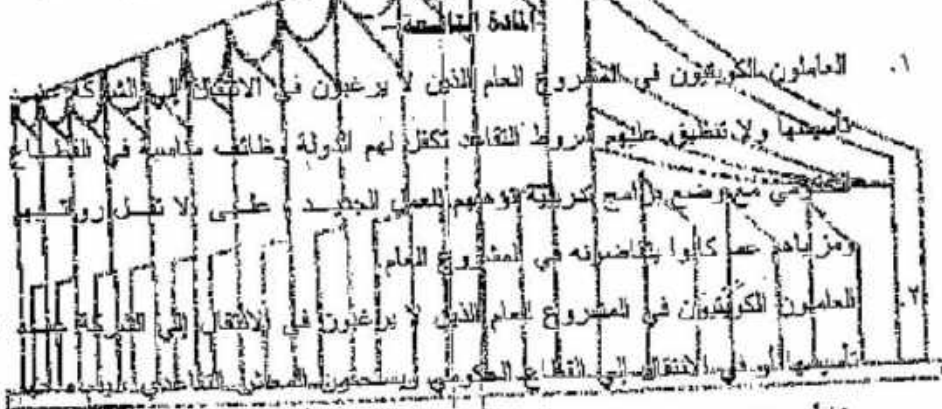 المادة التاسعة -
١. العاملون الكويتيون في المشروع العام الذين لا يرغبون في الانتقال إلى الشركة عند
تأسيسها ولا تنطبق عليهم شروط التقاعد تكفل لهم الدولة وظائف مناسبة في القطاع
الحكومي مع وضع برامج تدريبية تؤهلهم للعمل الجديد وعلى ألا تقل رواتبهم
ومزاياهم عما كانوا يتقاضونه في المشروع العام
٢. العاملون الكويتيون في المشروع العام الذين لا يرغبون في الانتقال إلى الشركة عند
تأسيسها أو في الانتقال إلى القطاع الحكومي ويستحقون المعاش التقاعدي